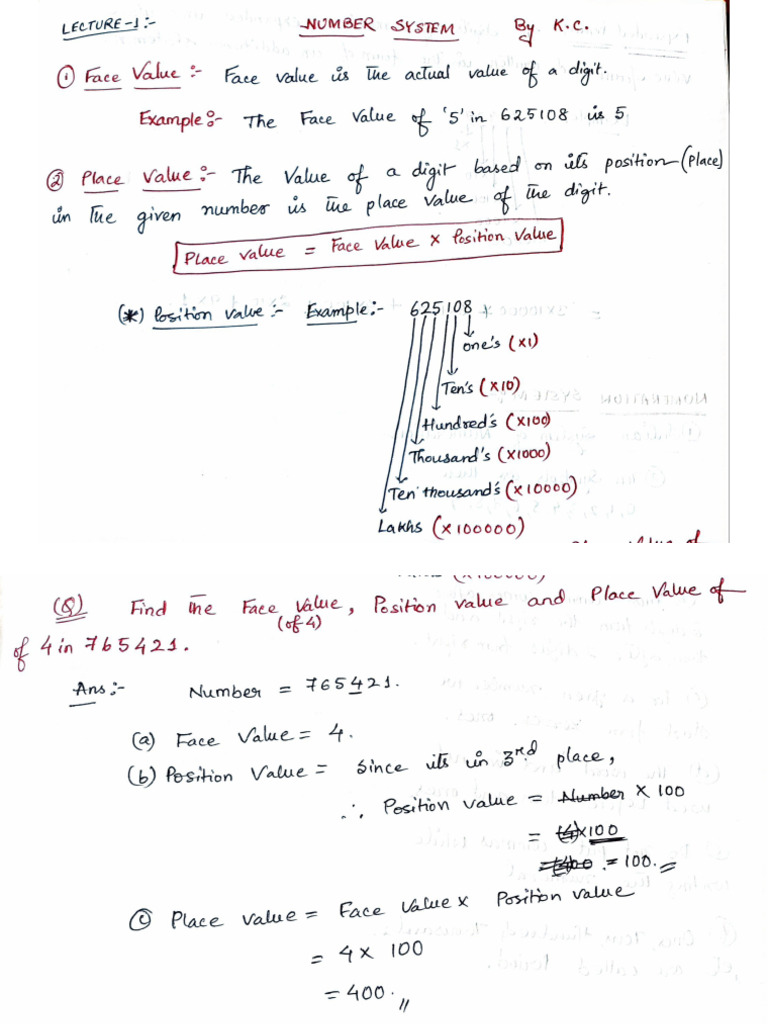 LECTURE-1:- NUMBER SYSTEM By K.C.
① Face Value :- Face value is the actual value of a digit.
Example:- The Face Value of '5' in 625108 is 5
② Place Value :- The Value of a digit based on its position (Place)
in the given number is the place value of the digit.
Place Value = Face Value × Position Value
(*) Position value :- Example:- 625108
One's (×1)
Ten's (×10)
Hundred's (×100)
Thousand's (×1000)
Ten thousand's (×10000)
Lakhs (×100000)
(Q) Find the Face Value, Position value and Place Value of
(of 4)
of 4 in 765421.
Ans:- Number = 765421.
(a) Face Value = 4.
(b) Position Value = Since its in 3rd place,
∴ Position value = Number × 100
= (4)×100
= 400 . = 100.
(c) Place value = Face Value × Position value
= 4 × 100
= 400.